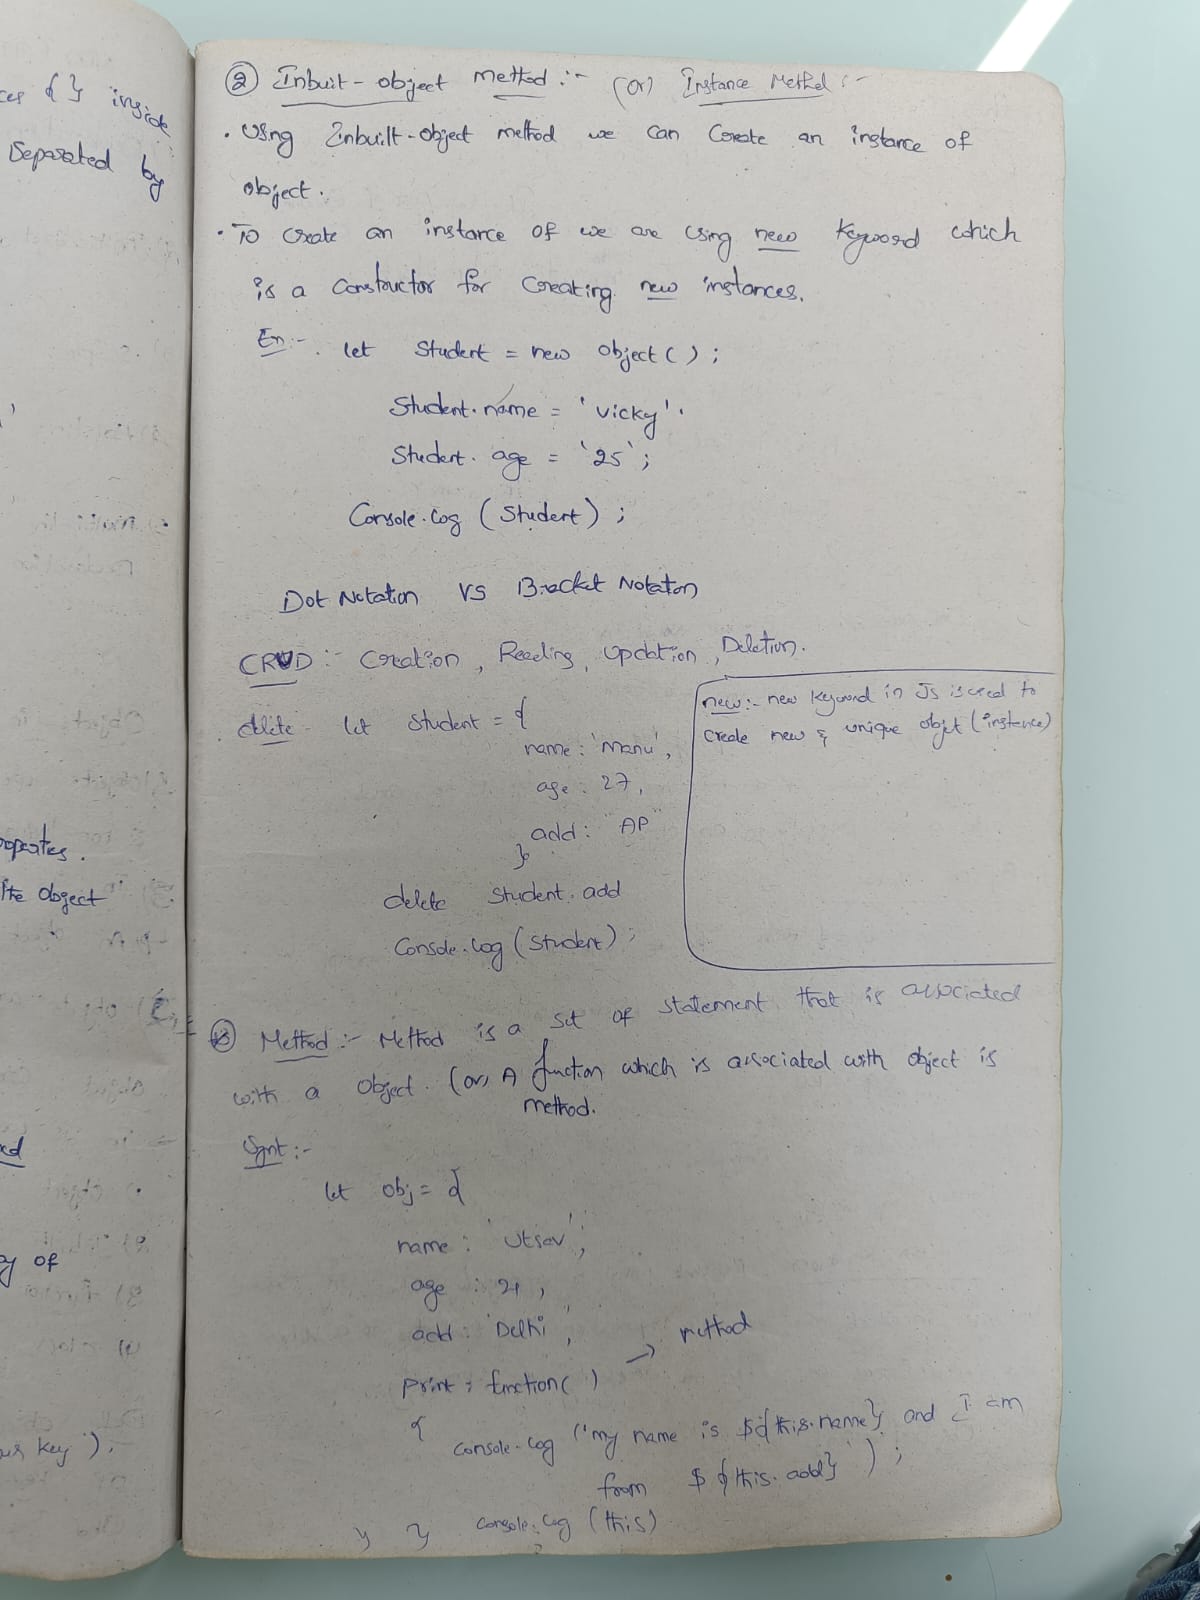 ces { } inside
Separated by
operties.
ite object
ed
y of
key').
② Inbuit - object Method :- (or) Instance Method :-
. Using Inbuilt-object method we can Create an instance of
object.
. To Create an instance of we are using new Keyword which
is a Constructor for Creating new instances.
Ex:- let Student = new Object ( ) ;
Student.name = 'Vicky'.
Student. age = '25';
Console.log (Student) ;
Dot Notation VS Bracket Notation
CRUD :- Creation, Reading, Updation, Deletion.
new:- new Keyword in JS is used to
create new & unique objet (instance)
delite - let Student = {
name : 'Manu',
age : 27,
add : "AP"
}
delete Student. add
Console.log (Student) ;
Method :- Method is a set of statement that is associated
with a object. (or) A function which is associated with object is
method.
Synt :-
let obj = {
name : 'Utsav',
age : 21,
add : 'Delhi', → method
print : function( )
{
Console.log ('my name is ${this.name} and I am
from ${this.add}') ;
Console.log (this)
} }